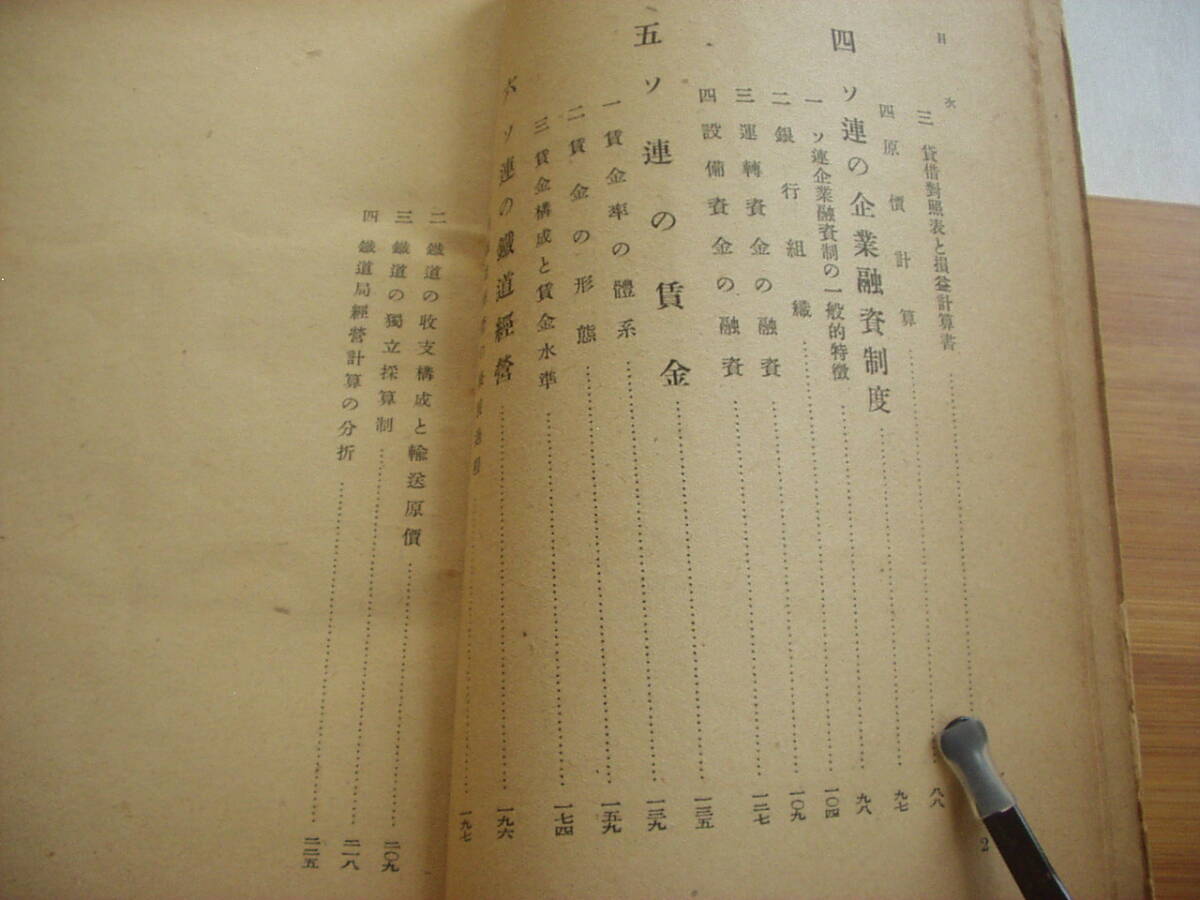 目次
三 貸借對照表と損益計算書
四 原價計算 八八
四 ソ連の企業融資制度 九七
一 ソ連企業融資制の一般的特徴 九八
二 銀行組織 一〇四
三 運轉資金の融資 一〇九
四 設備資金の融資 一二七
五 ソ連の賃金 一三五
一 賃金率の體系 一三九
二 賃金の形態 一五九
三 賃金構成と賃金水準 一七四
六 ソ連の鐵道經營 一九六
一九七
二 鐵道の收支構成と輸送原價 二〇九
三 鐵道の獨立採算制 二一八
四 鐵道局經營計算の分折 二二五
2